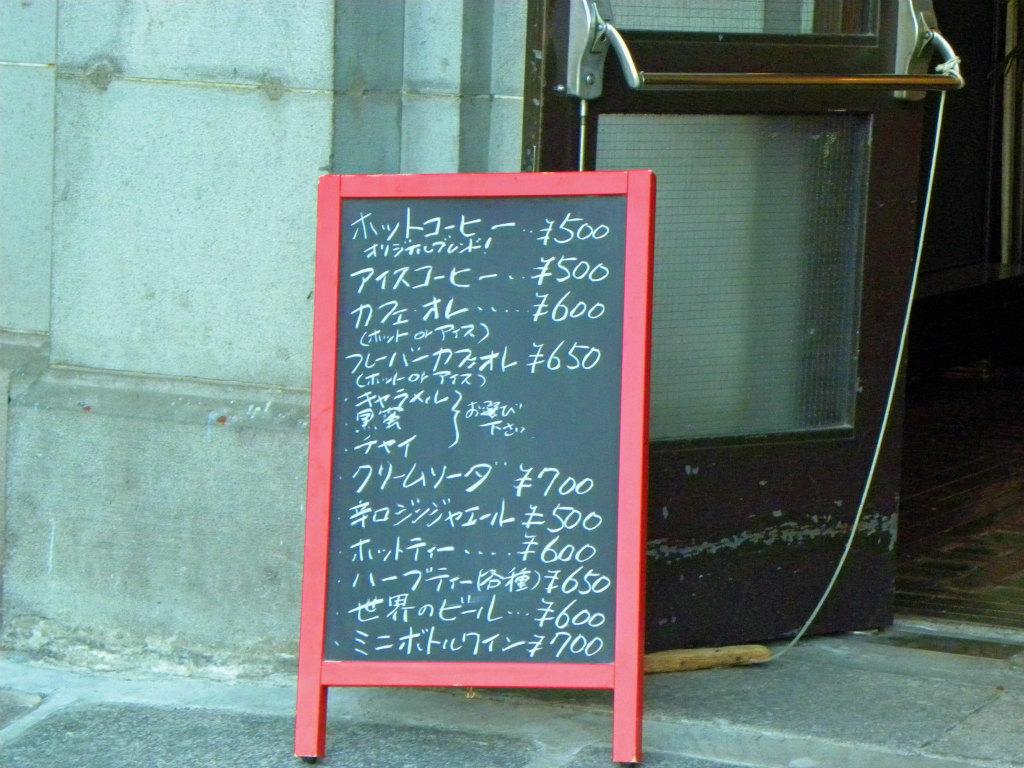 ホットコーヒー‥¥500
オリジナルブレンド!
アイスコーヒー‥‥¥500
カフェ・オレ‥‥‥¥600
(ホット or アイス)
フレーバーカフェオレ ¥650
(ホット or アイス)
・キャラメル
・黒蜜 お選び下さい
・チャイ
クリームソーダ ¥700
辛口ジンジャエール ¥500
ホットティー‥‥‥¥600
ハーブティー(各種)¥650
世界のビール‥‥¥600
ミニボトルワイン ¥700